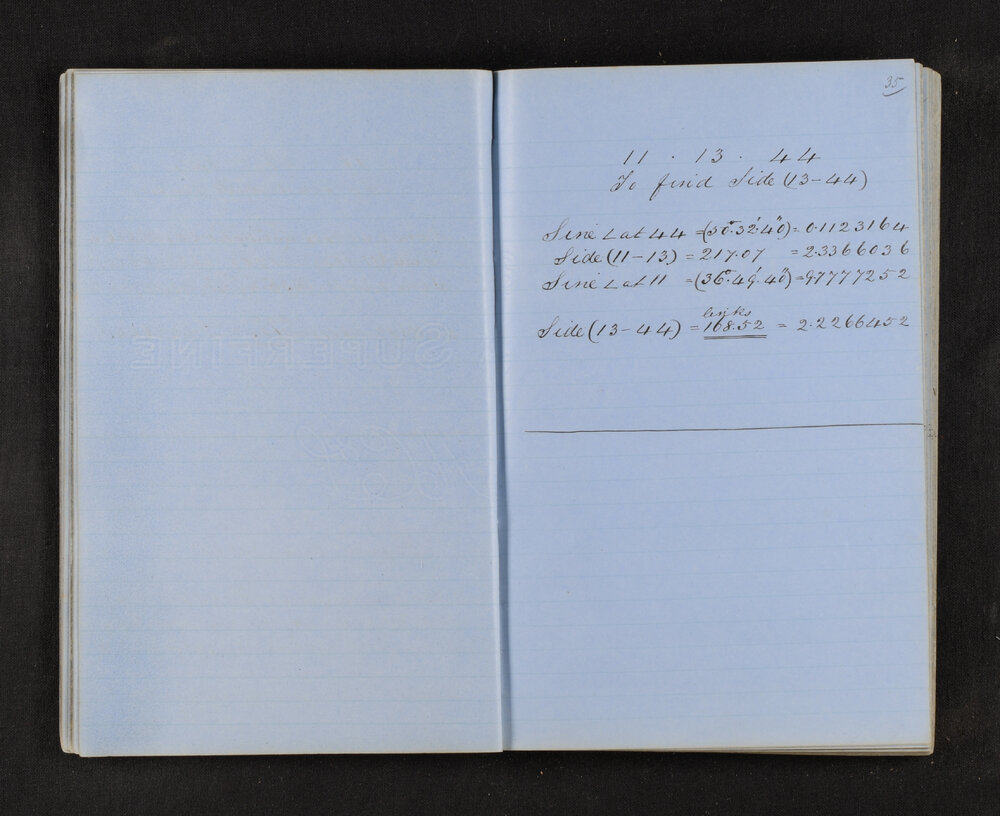 35
11 . 13 . 44
To find Side (13-44)
Sine ∠ at 44 = (50°.32'.40") = 0.1123164
Side (11-13) = 217.07 = 2.3366036
Sine ∠ at 11 = (36°.49'.40") = 9.7777252
links
Side (13-44) = 168.52 = 2.2266452
SUPERFINE